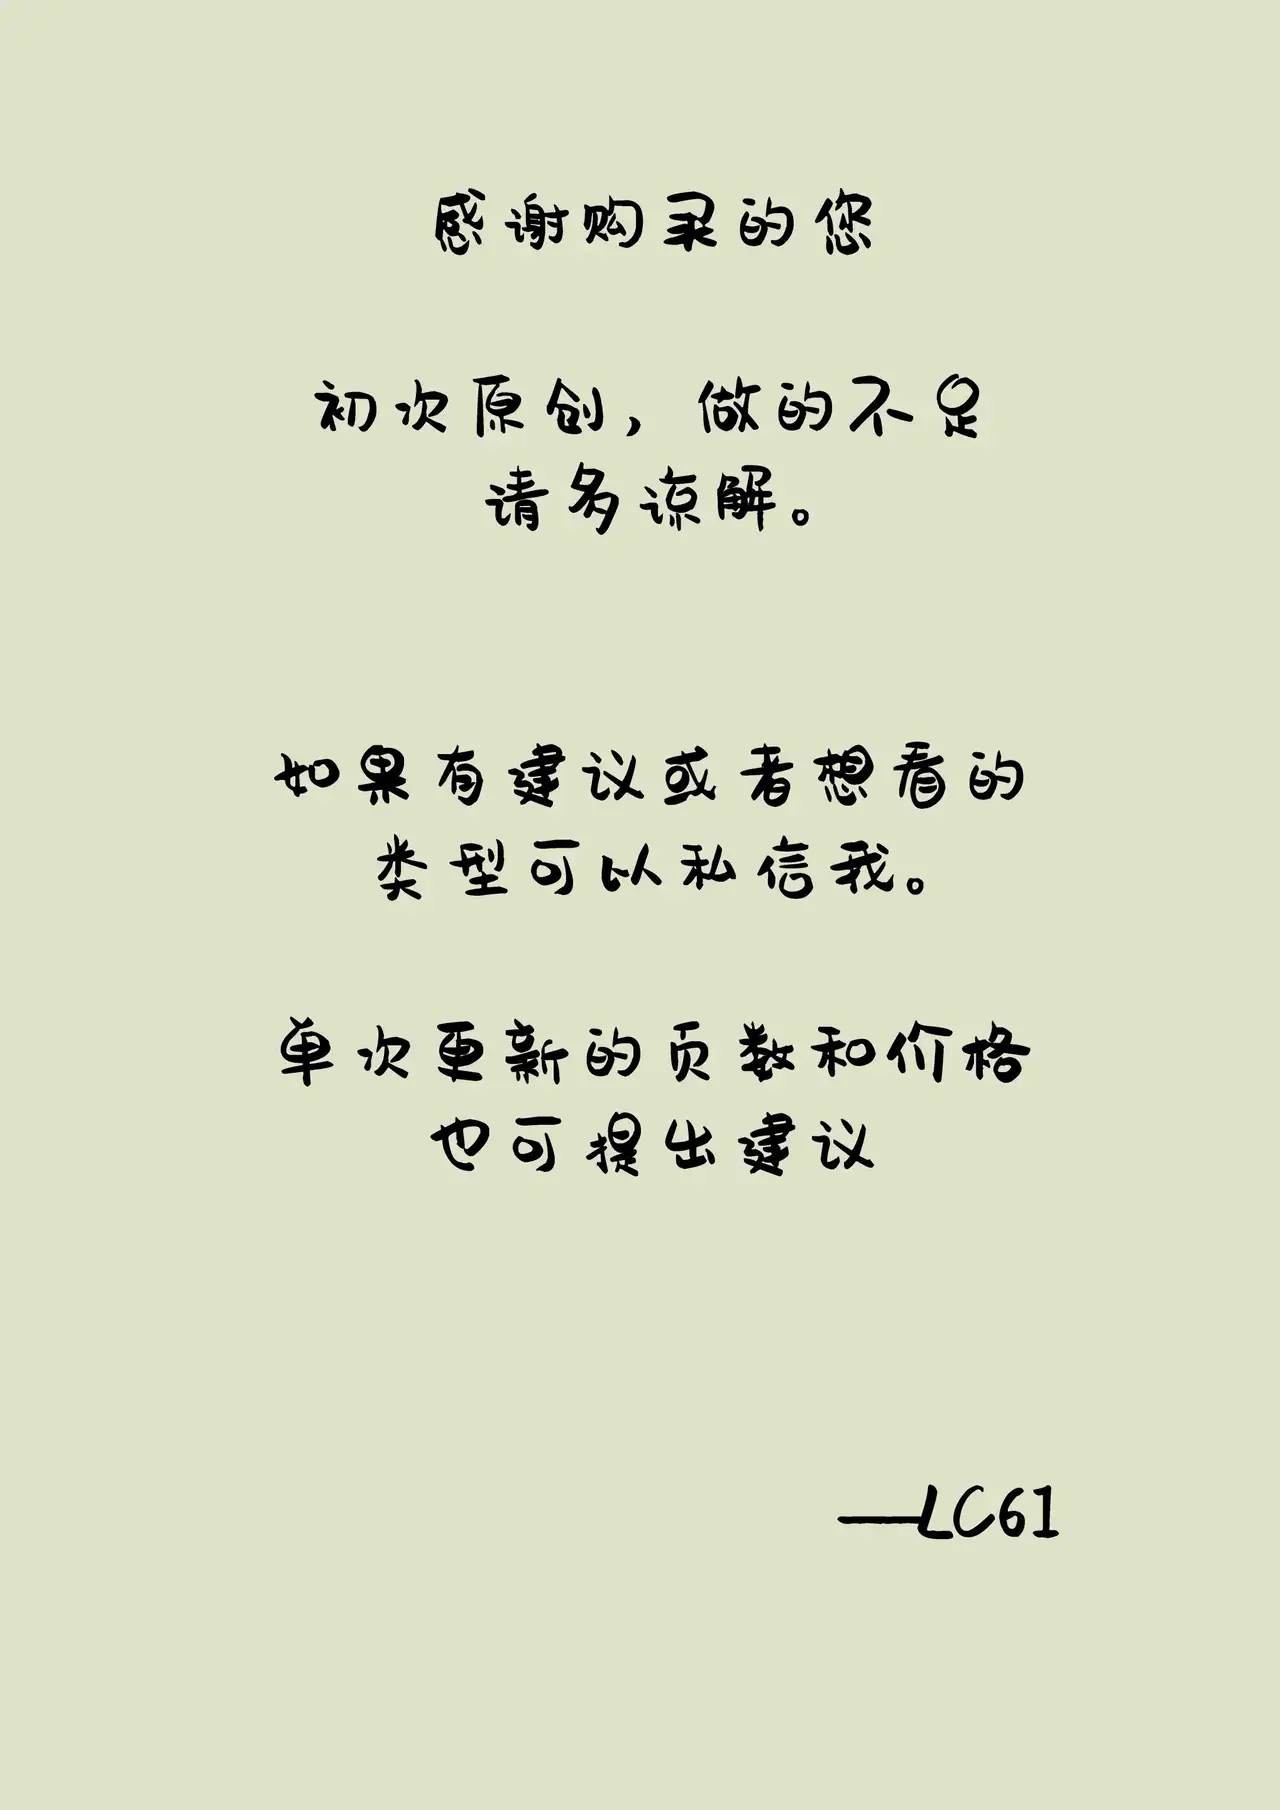 感谢购录的您
初次原创，做的不足
请多谅解。
如果有建议或者想看的
类型可以私信我。
单次更新的页数和价格
也可提出建议
——LC61